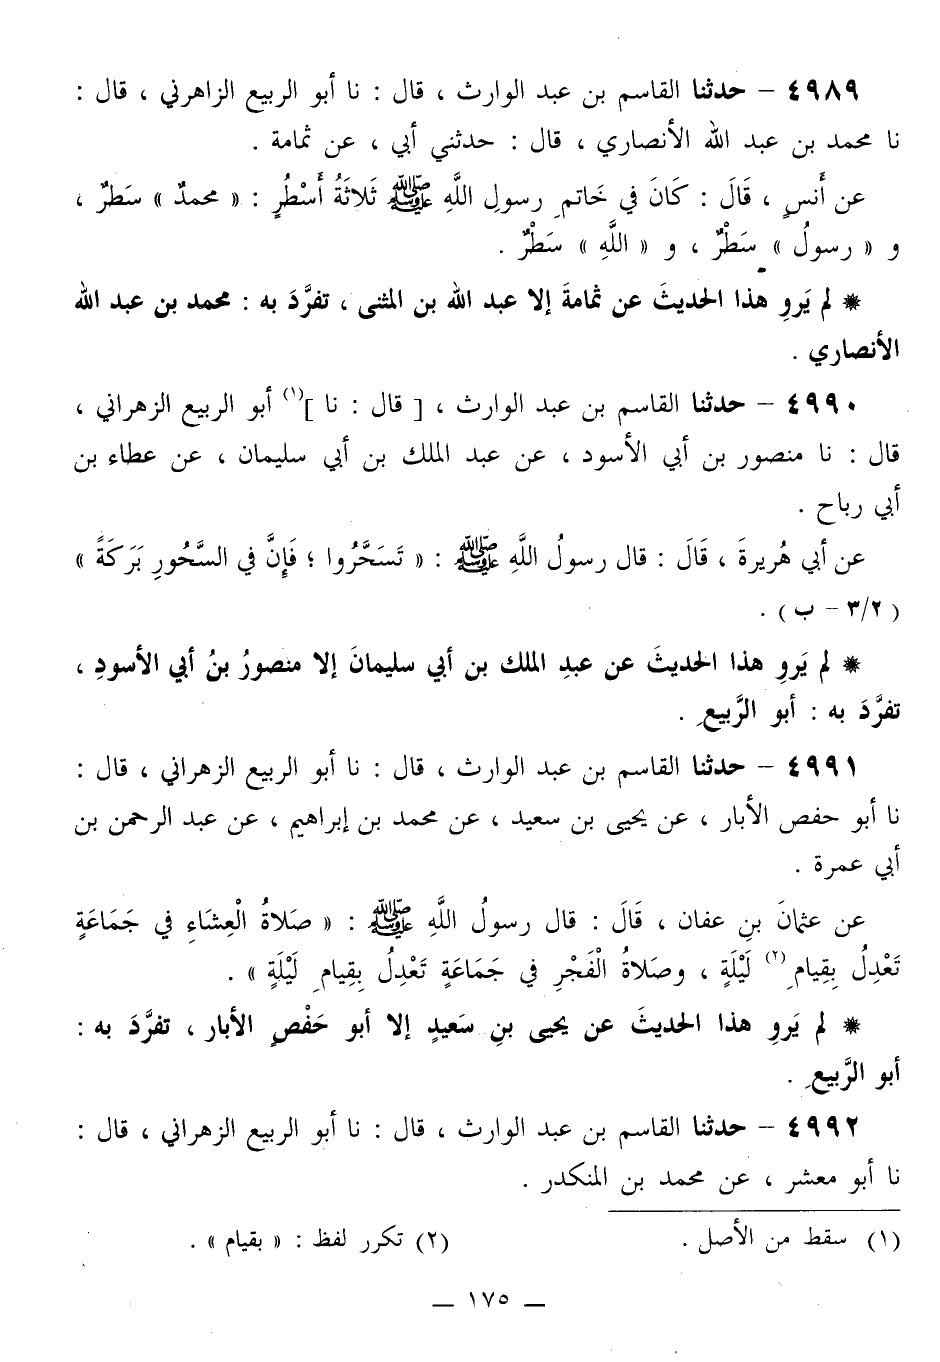 ٤٩٨٩ – حدثنا القاسم بن عبد الوارث ، قال : نا أبو الربيع الزاهرني ، قال :
نا محمد بن عبد الله الأنصاري ، قال : حدثني أبي ، عن ثمامة .
عن أَنسٍ ، قَالَ : كَانَ في خَاتمِ رسولِ اللَّهِ ﷺ ثَلاثَةُ أَسْطُرٍ : « محمدٌ » سَطرٌ ،
و « رسولُ » سَطْرٌ ، و « اللَّهِ » سَطْرٌ .
※ لم يَروِ هذا الحديثَ عن ثمامةَ إلا عبد الله بن المثنى ، تفرَّدَ به : محمد بن عبد الله
الأنصاري .
٤٩٩٠ – حدثنا القاسم بن عبد الوارث ، [ قال : نا ](١) أبو الربيع الزهراني ،
قال : نا منصور بن أبي الأسود ، عن عبد الملك بن أبي سليمان ، عن عطاء بن
أبي رباح .
عن أبي هُريرةَ ، قَالَ : قال رسولُ اللَّهِ ﷺ : « تَسَحَّرُوا ؛ فَإِنَّ في السَّحُورِ بَرَكَةً »
( ٣/٢ – ب ) .
※ لم يَروِ هذا الحديثَ عن عبدِ الملك بن أبي سليمانَ إلا منصورُ بنُ أبي الأسودِ ،
تفرَّدَ به : أبو الرَّبيعِ .
٤٩٩١ – حدثنا القاسم بن عبد الوارث ، قال : نا أبو الربيع الزهراني ، قال :
نا أبو حفص الأبار ، عن يحيى بن سعيد ، عن محمد بن إبراهيم ، عن عبد الرحمن بن
أبي عمرة .
عن عثمانَ بنِ عفان ، قَالَ : قال رسولُ اللَّهِ ﷺ : « صَلاةُ الْعِشَاءِ في جَمَاعَةٍ
تَعْدِلُ بِقِيامِ(٢) لَيْلَةٍ ، وصَلاةُ الْفَجْرِ في جَمَاعَةٍ تَعْدِلُ بِقِيامِ لَيْلَةٍ » .
※ لم يَروِ هذا الحديثَ عن يحيى بنِ سَعيدٍ إلا أبو حَفْصٍ الأبار ، تفرَّدَ به :
أبو الرَّبيعِ .
٤٩٩٢ – حدثنا القاسم بن عبد الوارث ، قال : نا أبو الربيع الزهراني ، قال :
نا أبو معشر ، عن محمد بن المنكدر .
(١) سقط من الأصل .
(٢) تكرر لفظ : « بقيام » .
– ١٧٥ –